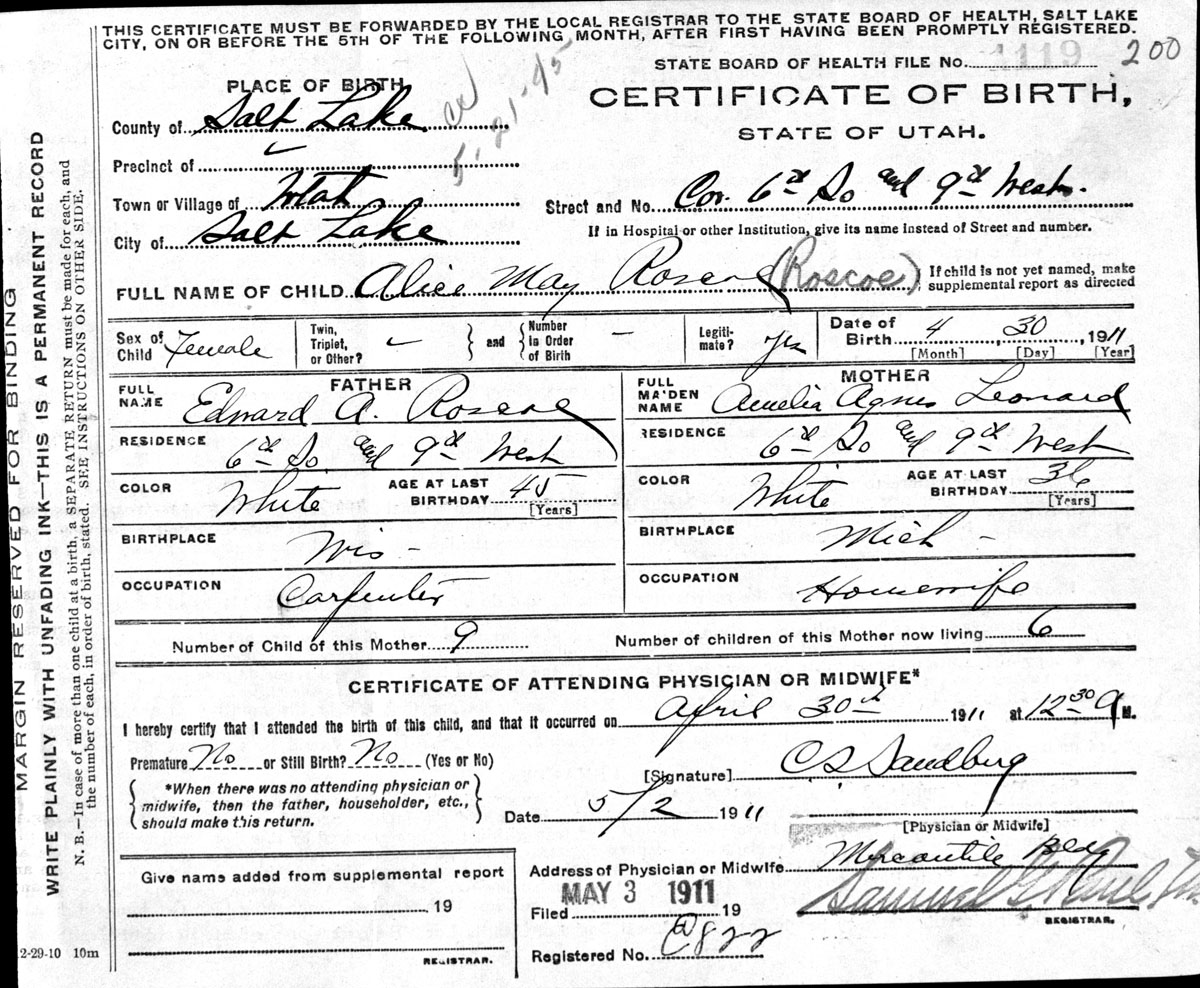 THIS CERTIFICATE MUST BE FORWARDED BY THE LOCAL REGISTRAR TO THE STATE BOARD OF HEALTH, SALT LAKE
CITY, ON OR BEFORE THE 5TH OF THE FOLLOWING MONTH, AFTER FIRST HAVING BEEN PROMPTLY REGISTERED.
STATE BOARD OF HEALTH FILE No. 1119 200
PLACE OF BIRTH
CERTIFICATE OF BIRTH,
STATE OF UTAH.
County of Salt Lake
5-21-45
Precinct of
Town or Village of Utah
Street and No. Cor. 6th So and 9th West
City of Salt Lake
If in Hospital or other Institution, give its name instead of Street and number.
FULL NAME OF CHILD Alice May Roscoe (Roscoe)
If child is not yet named, make
supplemental report as directed
Sex of Child Female
Twin, Triplet, or Other? and Number in Order of Birth –
Legitimate? yes
Date of Birth 4, 30, 1911
[Month] [Day] [Year]
FATHER
FULL NAME Edward A. Roscoe
RESIDENCE 6th So. and 9th West
COLOR White AGE AT LAST BIRTHDAY 45 [Years]
BIRTHPLACE Wis –
OCCUPATION Carpenter
MOTHER
FULL MAIDEN NAME Amelia Agnes Leonard
RESIDENCE 6th So and 9th West
COLOR White AGE AT LAST BIRTHDAY 36 [Years]
BIRTHPLACE Mich –
OCCUPATION Housewife
Number of Child of this Mother 9
Number of children of this Mother now living 6
CERTIFICATE OF ATTENDING PHYSICIAN OR MIDWIFE*
I hereby certify that I attended the birth of this child, and that it occurred on April 30th, 1911 at 12 30 A M.
Premature No or Still Birth? No (Yes or No)
*When there was no attending physician or
midwife, then the father, householder, etc.,
should make this return.
[Signature] C S Sandberg
Date 5/2 1911
[Physician or Midwife]
Address of Physician or Midwife Mercantile Bldg
Give name added from supplemental report
19
REGISTRAR.
MAY 3 1911
Filed 19
Samuel
REGISTRAR.
Registered No. 822
2-29-10 10m
MARGIN RESERVED FOR BINDING
WRITE PLAINLY WITH UNFADING INK—THIS IS A PERMANENT RECORD
N. B.—In case of more than one child at a birth, a SEPARATE RETURN must be made for each, and
the number of each, in order of birth, stated. SEE INSTRUCTIONS ON OTHER SIDE.